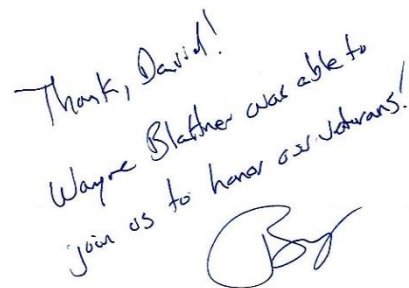 Thank, David!
Wayne Blattner was able to
join us to honor our veterans!